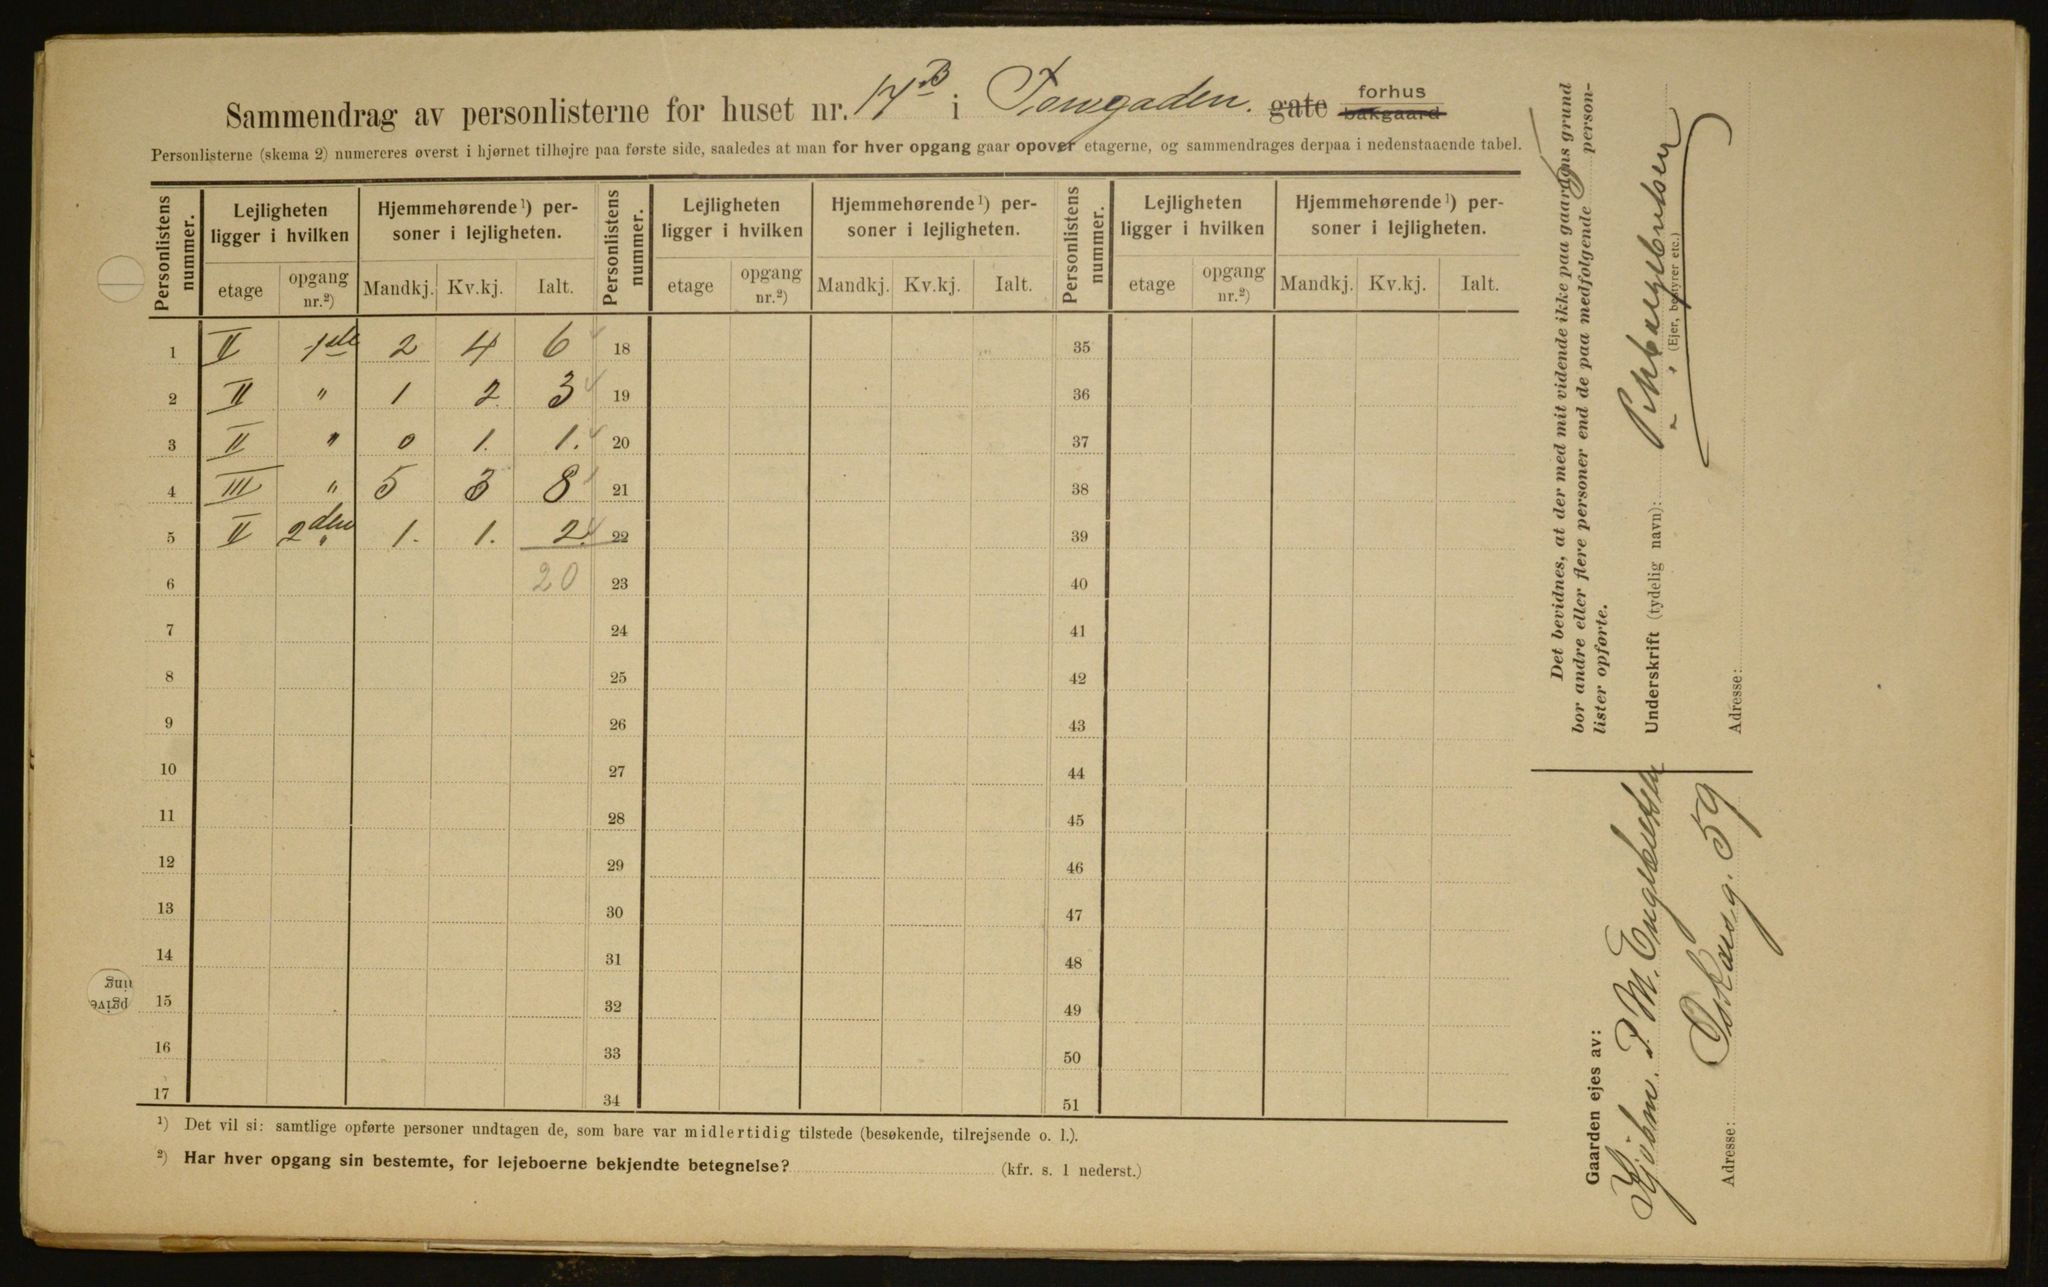 Sammendrag av personlisterne for huset nr. 17B i Torvgaden. gate forhus bakgaard
Personlisterne (skema 2) numereres øverst i hjørnet tilhøjre paa første side, saaledes at man for hver opgang gaar opover etagerne, og sammendrages derpaa i nedenstaaende tabel.
Personlistens nummer. Lejligheten ligger i hvilken Hjemmehørende¹) personer i lejligheten. Personlistens nummer. Lejligheten ligger i hvilken Hjemmehørende¹) personer i lejligheten. Personlistens nummer. Lejligheten ligger i hvilken Hjemmehørende¹) personer i lejligheten.
etage opgang nr.²) Mandkj. Kv.kj. Ialt. etage opgang nr.²) Mandkj. Kv.kj. Ialt. etage opgang nr.²) Mandkj. Kv.kj. Ialt.
1 II 1ste 2 4 6 18 35
2 II " 1 2 3 19 36
3 II " 0 1. 1. 20 37
4 III " 5 3 8 21 38
5 II 2den 1. 1. 2. 22 39
6 20 23 40
7 24 41
8 25 42
9 26 43
10 27 44
11 28 45
12 29 46
13 30 47
14 31 48
15 32 49
16 33 50
17 34 51
¹) Det vil si: samtlige opførte personer undtagen de, som bare var midlertidig tilstede (besøkende, tilrejsende o. l.).
²) Har hver opgang sin bestemte, for lejeboerne bekjendte betegnelse? (kfr. s. 1 nederst.)
Det bevidnes, at der med mit vidende ikke paa gaardens grund
bor andre eller flere personer end de paa medfølgende person-
lister opførte.
Underskrift (tydelig navn):
(Ejer, bestyrer etc.)
Adresse:
Gaarden ejes av:
P. M. Engebretsen
Adresse: Oskarsg. 59
pgive
ning